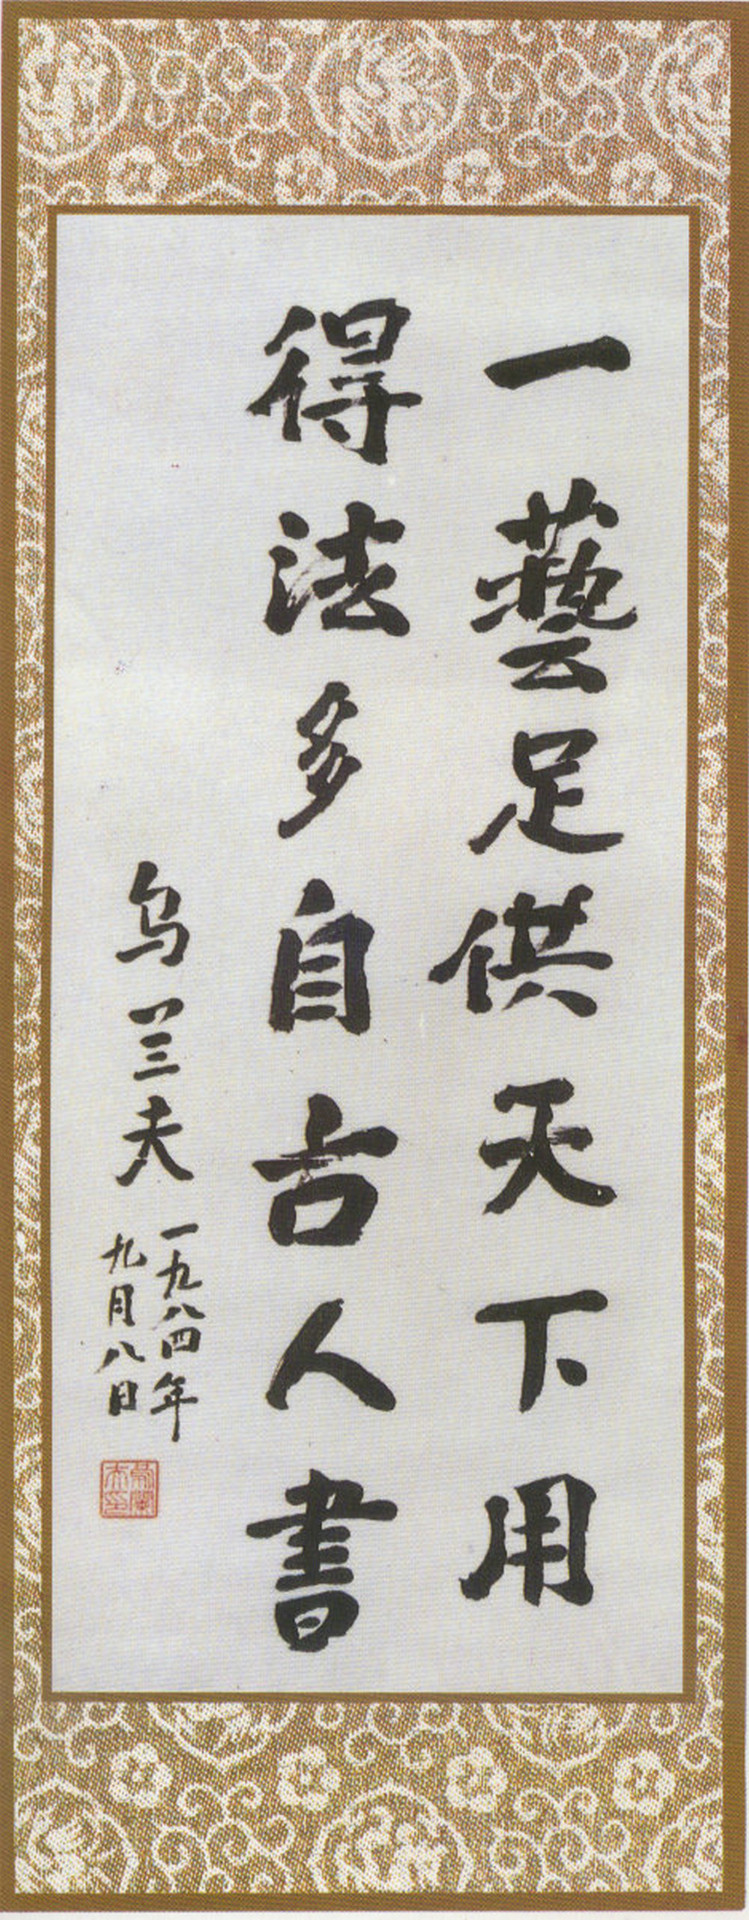 一藝足供天下用
得法多自古人書
乌兰夫
一九八四年
九月八日